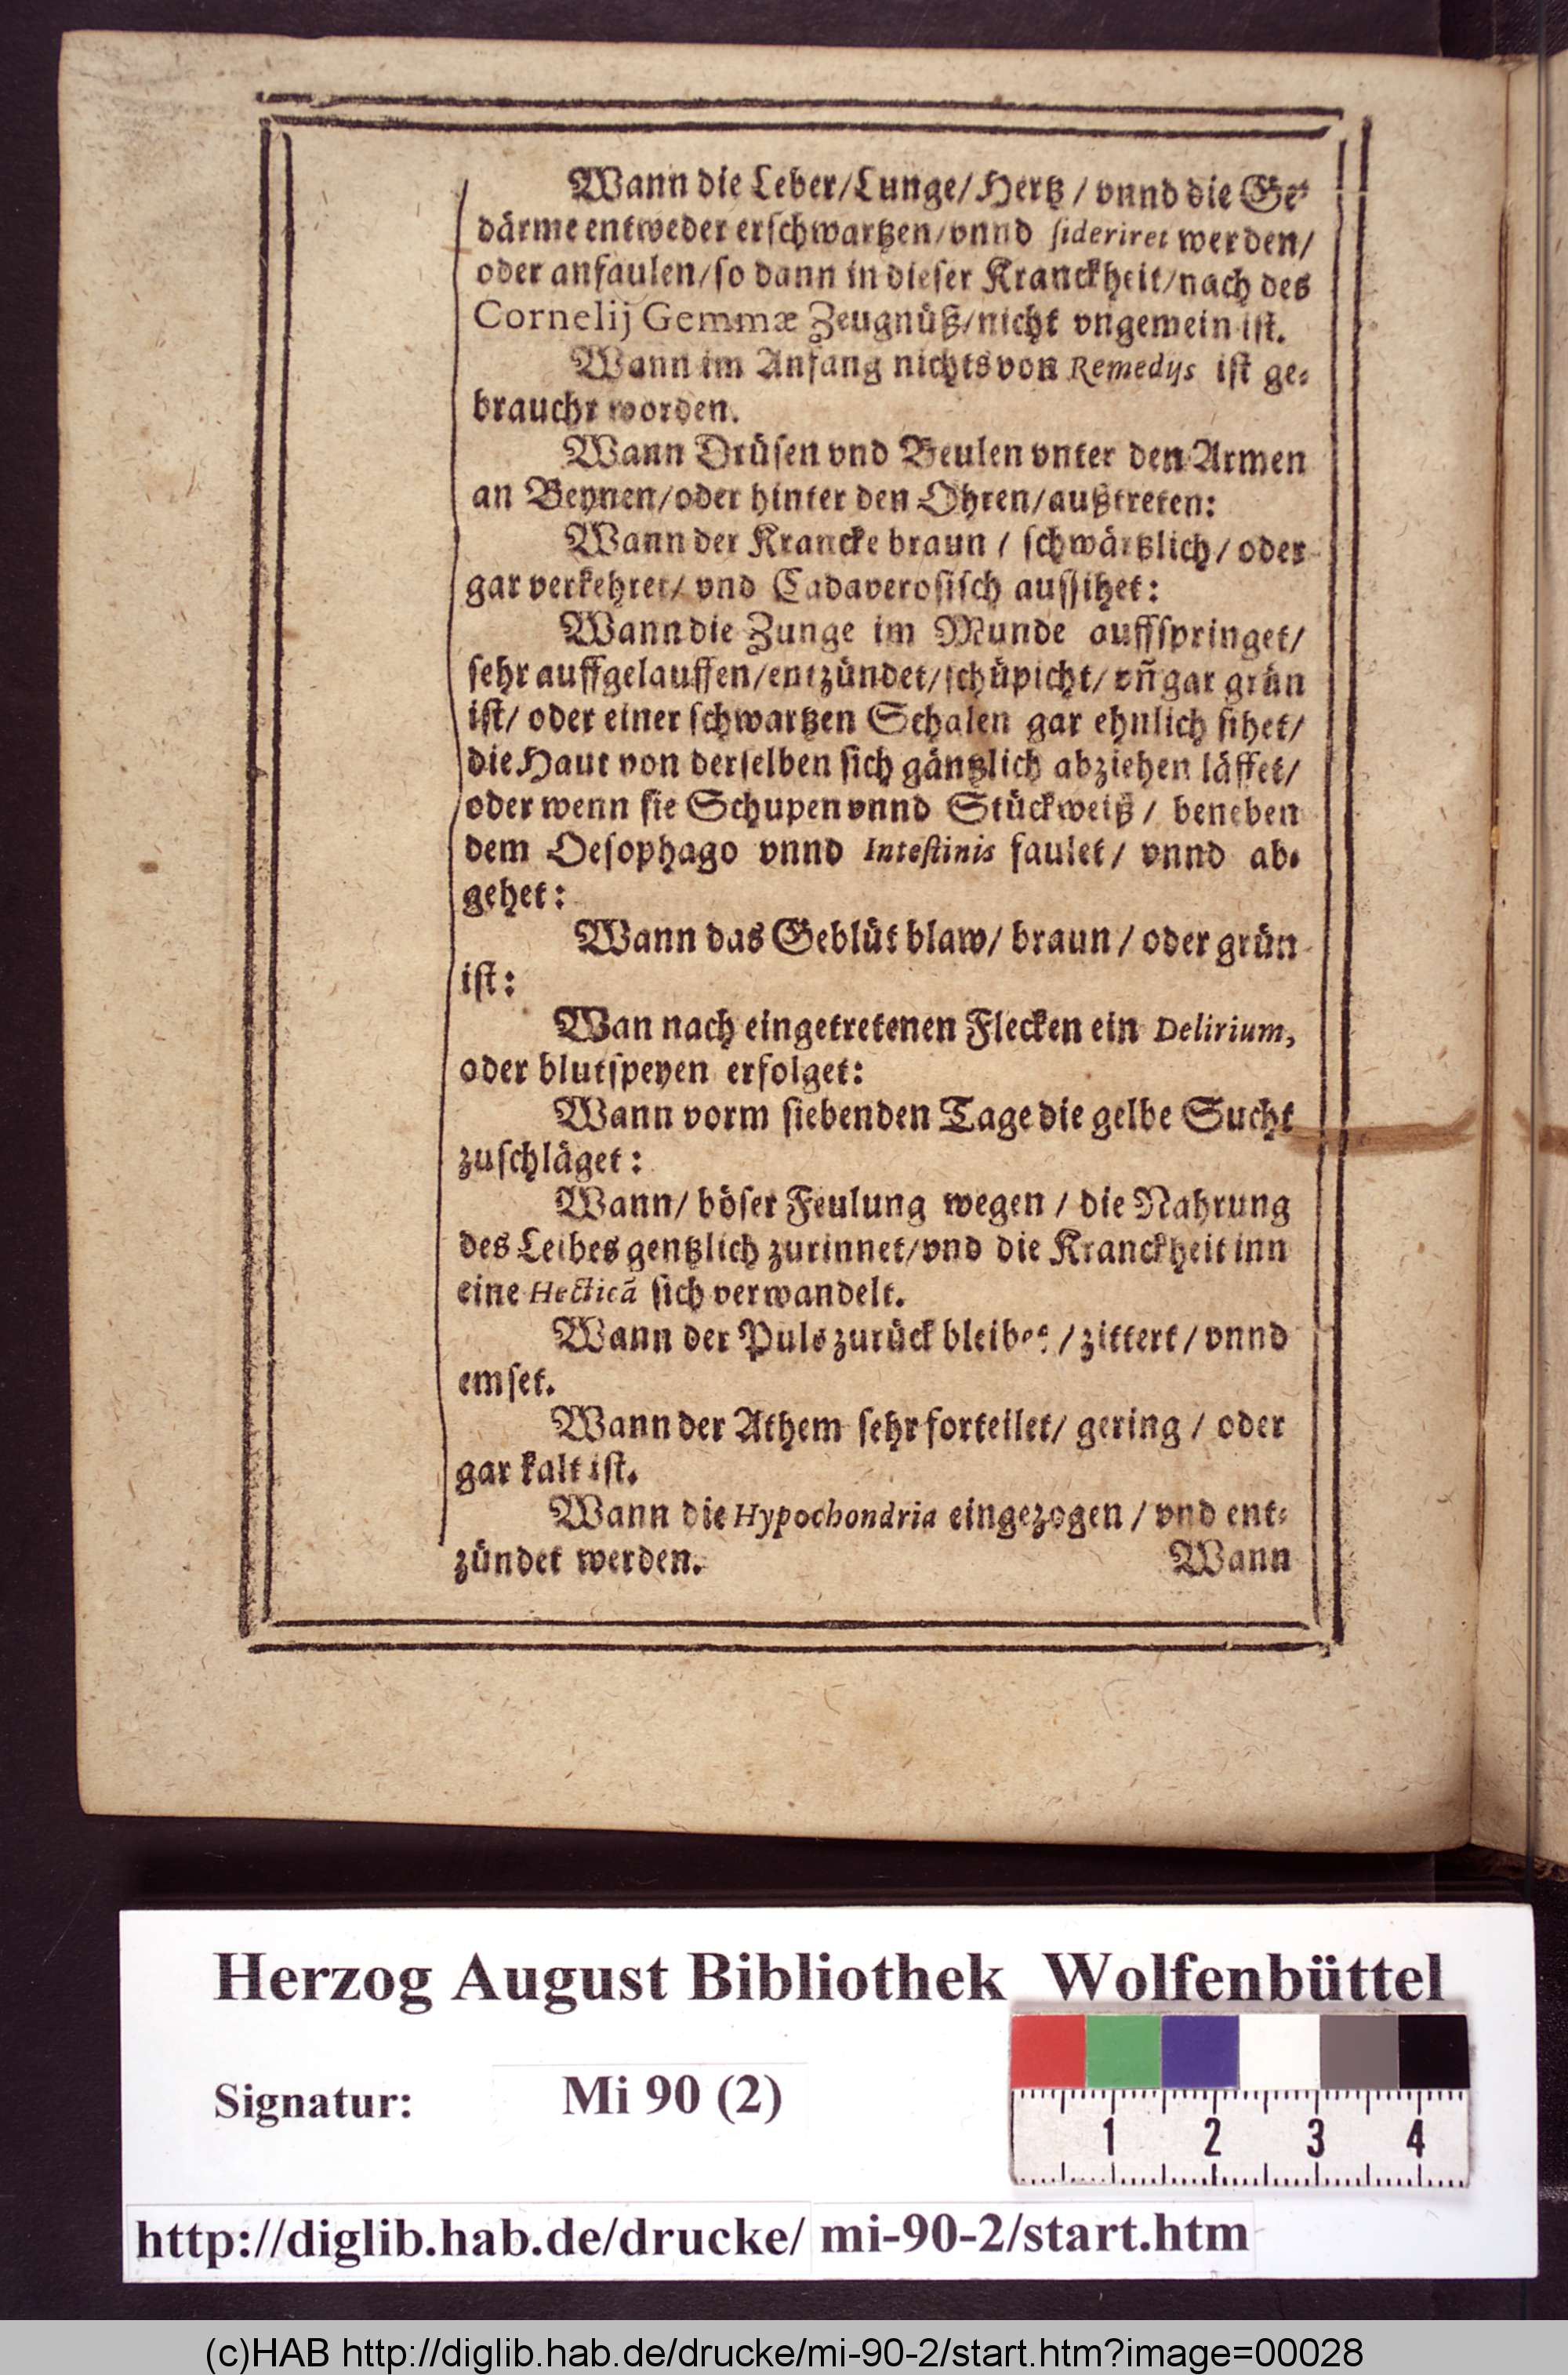 Wann die Leber/Lunge/Hertz / vnnd die Ge-
därme entweder erschwartzen/vnnd sideriret werden/
oder anfaulen/so dann in dieser Kranckheit/nach des
Cornelij Gemmæ Zeugnüß/nicht vngemein ist.
Wann im Anfang nichts von Remedijs ist ge-
braucht worden.
Wann Drüsen vnd Beulen vnter den Armen
an Beynen/oder hinter den Ohren/außtreten:
Wann der Krancke braun / schwärtzlich/ oder
gar verkehret/ vnd Cadaverosisch aussihet:
Wann die Zunge im Munde auffspringet/
sehr auffgelauffen/entzündet/schüpicht/ vñ gar grün
ist/ oder einer schwartzen Schalen gar ehnlich sihet/
die Haut von derselben sich gäntzlich abziehen lässet/
oder wenn sie Schupen vnnd Stückweiß / beneben
dem Oesophago vnnd Intestinis faulet/ vnnd ab-
gehet:
Wann das Geblüt blaw/ braun / oder grün
ist:
Wan nach eingetretenen Flecken ein Delirium,
oder blutspeyen erfolget:
Wann vorm siebenden Tage die gelbe Sucht
zuschläget:
Wann/ böser Feulung wegen / die Nahrung
des Leibes gentzlich zurinnet/vnd die Kranckheit inn
eine Hecticã sich verwandelt.
Wann der Puls zurück bleibet / zittert / vnnd
emset.
Wann der Athem sehr forteilet/ gering / oder
gar kalt ist.
Wann die Hypochondria eingezogen / vnd ent-
zündet werden. Wann
Herzog August Bibliothek Wolfenbüttel
Signatur: Mi 90 (2)
1 2 3 4
http://diglib.hab.de/drucke/ mi-90-2/start.htm
(c)HAB http://diglib.hab.de/drucke/mi-90-2/start.htm?image=00028